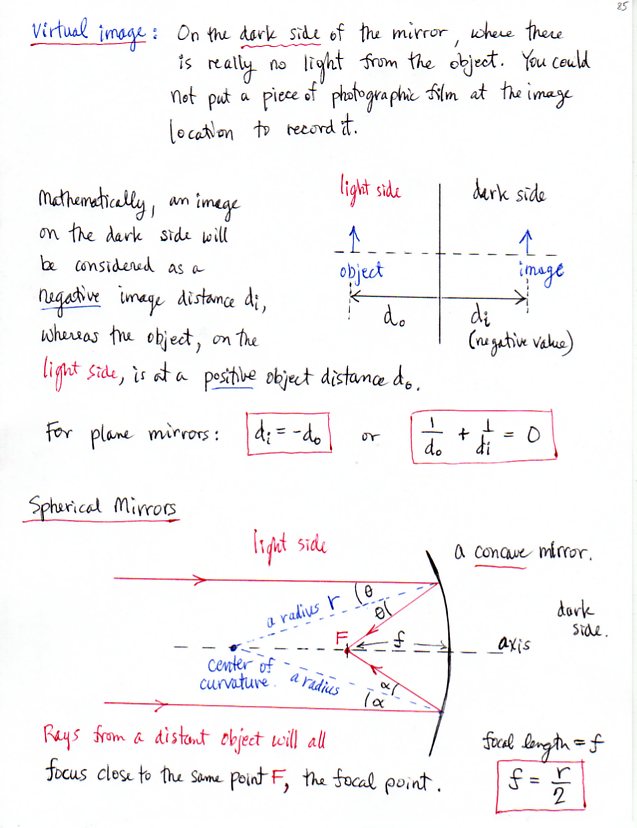 85
Virtual image: On the dark side of the mirror, where there
is really no light from the object. You could
not put a piece of photographic film at the image
location to record it.
Mathematically, an image
on the dark side will
be considered as a
negative image distance di,
whereas the object, on the
light side, is at a positive object distance do.
light side
dark side
object
image
do
di
(negative value)
For plane mirrors: di = -do or 1/do + 1/di = 0
Spherical Mirrors
light side
a concave mirror.
dark
side.
a radius r
θ
θ
F
f
axis
center of
curvature.
a radius
α
α
Rays from a distant object will all
focus close to the same point F, the focal point.
focal length = f
f = r/2